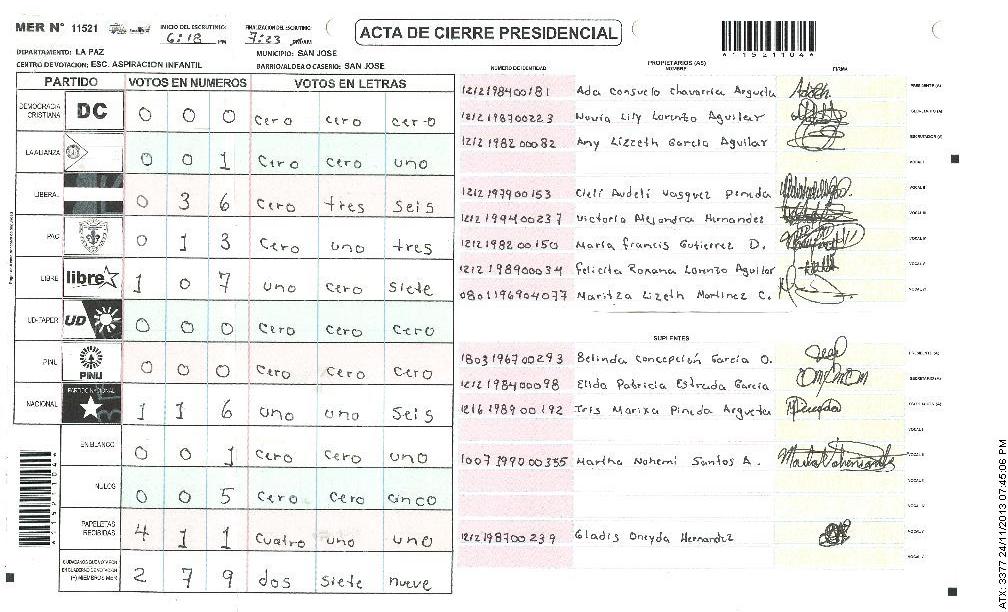 MER N° 11521 INICIO DEL ESCRUTINIO: 6:18 PM FINALIZACION DEL ESCRUTINIO: 7:23
ACTA DE CIERRE PRESIDENCIAL
A11521104A
DEPARTAMENTO: LA PAZ MUNICIPIO: SAN JOSE
CENTRO DE VOTACION: ESC. ASPIRACION INFANTIL BARRIO/ALDEA O CASERIO: SAN JOSE
PARTIDO VOTOS EN NUMEROS VOTOS EN LETRAS
DEMOCRACIA CRISTIANA DC 0 0 0 cero cero cero
LA ALIANZA 0 0 1 cero cero uno
LIBERAL 0 3 6 cero tres seis
PAC 0 1 3 cero uno tres
LIBRE libre 1 0 7 uno cero siete
UD-FAPER UD 0 0 0 cero cero cero
PINU PINU 0 0 0 cero cero cero
NACIONAL PARTIDO NACIONAL 1 1 6 uno uno seis
EN BLANCO 0 0 1 cero cero uno
NULOS 0 0 5 cero cero cinco
PAPELETAS RECIBIDAS 4 1 1 cuatro uno uno
(+) MIEMBROS MER 2 7 9 dos siete nueve
A11521104A
PROPIETARIOS (AS)
NUMERO DE IDENTIDAD NOMBRE FIRMA
1212198400181 Ada Consuelo Chavarria Argueta PRESIDENTE (A)
1212198700223 Novia Lily Lorenzo Aguilar SECRETARIO (A)
1212198200082 Any Lizzeth Garcia Aguilar ESCRUTADOR (A)
VOCAL I
1212197900153 Cleli Audeli Vasquez Pineda VOCAL II
1212199400237 Victoria Alejandra Hernandez VOCAL III
1212198200150 Maria francis Gutierrez D. VOCAL IV
1212198900034 felicita Roxana Lorenzo Aguilar VOCAL V
0801196904077 Maritza Lizeth Martinez C. VOCAL VI
SUPLENTES
1803196700293 Belinda Concepción Garcia O. PRESIDENTE (A)
1212198400098 Elida Patricia Estrada Garcia SECRETARIO (A)
1216198900192 Iris Marixa Pineda Argueta ESCRUTADOR (A)
VOCAL I
1007199000355 Martha Nohemi Santos A. VOCAL II
VOCAL III
VOCAL IV
1212198700239 Gladis Oneyda Hernandez VOCAL V
VOCAL VI
ATX: 3377 24/11/2013 07:45:06 PM